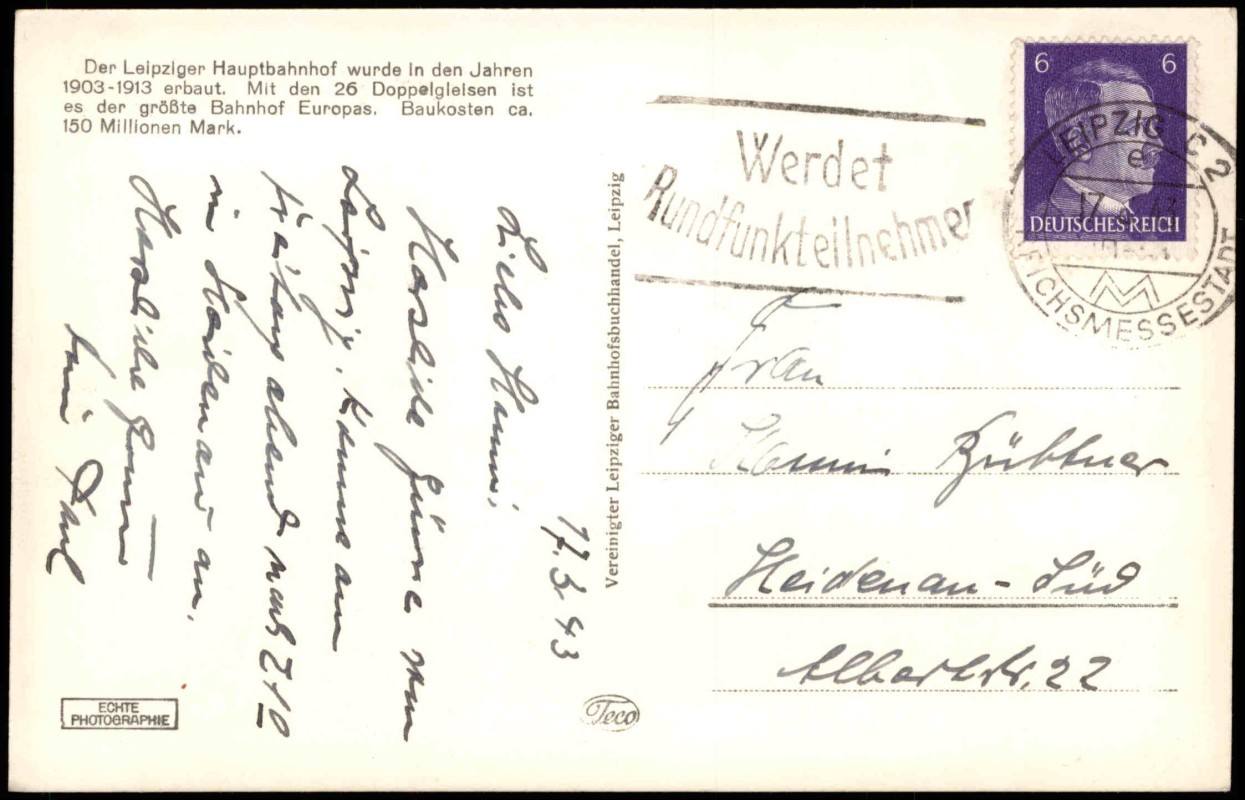 Der Leipziger Hauptbahnhof wurde in den Jahren
1903-1913 erbaut. Mit den 26 Doppelgleisen ist
es der größte Bahnhof Europas. Baukosten ca.
150 Millionen Mark.
17.3.43
Liebe Hanni,
Herzliche Grüße von
Leipzig. Komme am
Freitag abend nach
in Heidenau an.
Herzliche
Paul
ECHTE
PHOTOGRAPHIE
Vereinigter Leipziger Bahnhofsbuchhandel, Leipzig
Teco
Werdet
Rundfunkteilnehmer
6 6
DEUTSCHES REICH
LEIPZIG C 2
e
REICHSMESSESTADT
Frau
Hanni Büttner
Heidenau-Süd
Albertstr. 22